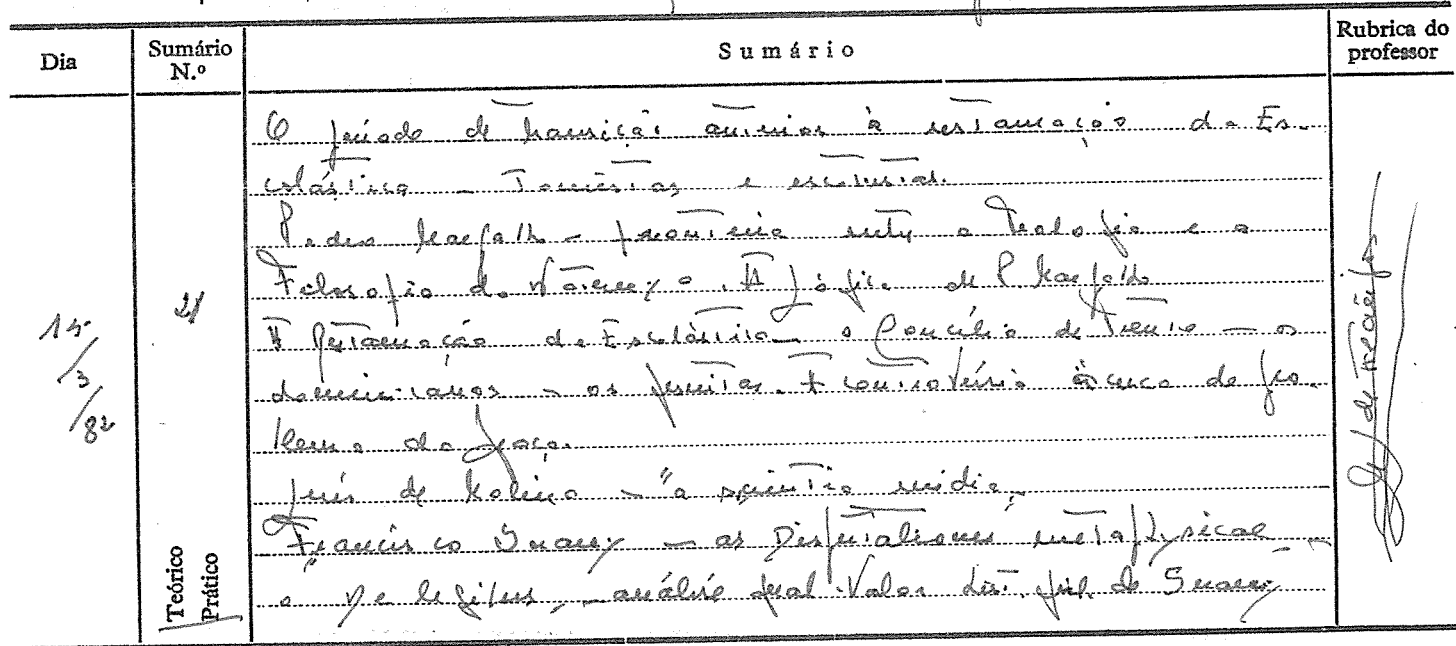 Dia
Sumário N.º
Sumário
Rubrica do professor
O período de transição anterior à restauração da Es-
colástica - Tomistas e escotistas.
Pedro Margalho - fronteira entre a Teologia e a
Filosofia da Natureza. A Lógica de P. Margalho
A Restauração da Escolástica - o Concílio de Trento - os
dominicanos - os jesuitas. A controvérsia àcerca do pro-
blema da graça.
Luís de Molina - "a scientia media"
Francisco Suarez - as Disputationes metaphysicae
o De legibus, - análise geral. Valor de Suarez
15/3/82
21
Teórico
Prático